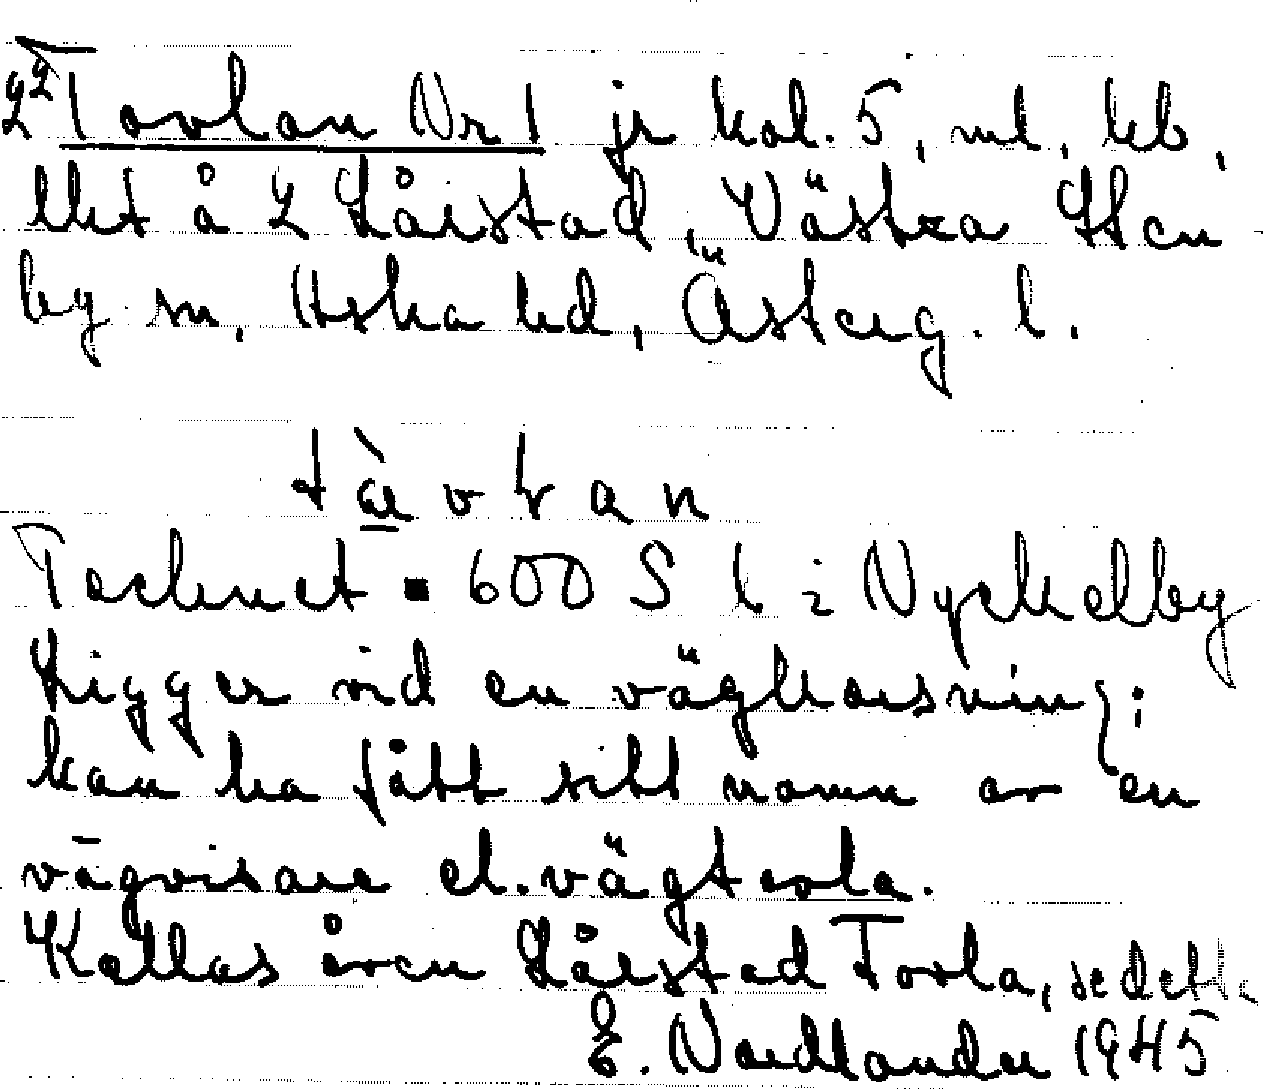 Tavlan Nr 1 jr kol. 5, ml, kb,
lht å L Hårstad, Västra Sten
by sn, Yska hd, Österg. l.
tàvlan
Tecknet ▪ 600 S l i Nyckelby
Ligger vid en vägkorsning;
kan ha fått sitt namn av en
vägvisare el. vägtavla.
Kallas även Hårstad Tavla, se detta
E. Nordlander 1945